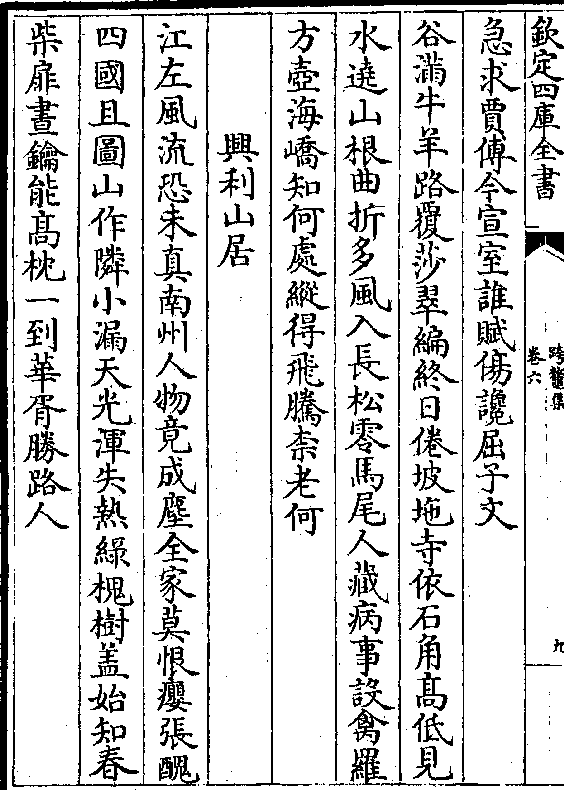 欽定四庫全書
跨鼇集
卷六
九
急求賈傅令宣室誰賦傷讒屈子文
谷滿牛羊路覆莎翠編終日倦坡地寺依石角髙低見
水遶山根曲折多風入長松零馬尾人藏病事設禽羅
方壺海嶠知何處縱得飛騰柰老何
興利山居
江左風流恐未真南州人物竟成塵全家莫恨癭張醜
四國且圖山作隣小漏天光渾失熱綠槐樹盖始知春
柴扉晝鑰能髙枕一到華胥勝路人